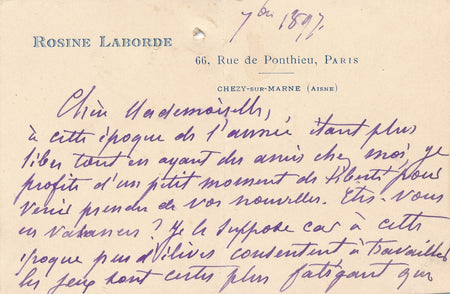 7bre 1897.
ROSINE LABORDE
66, Rue de Ponthieu, PARIS
CHEZY-SUR-MARNE (AISNE)
Chère Mademoiselle,
à cette époque de l'année étant plus
libre tout en ayant des amis chez moi je
profite d'un petit moment de liberté pour
venir prendre de vos nouvelles. Etes-vous
en vacances? Je le suppose car à cette
époque peu d'élèves consentent à travailler
les jeux sont certes plus fatigant que